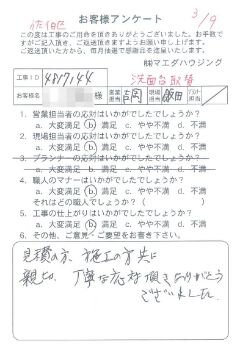 佐伯区
3/9
お客様アンケート
この度は工事のご用命を頂きありがとうございました。お手数で
すがご記入頂き、ご返送頂きますようお願い申し上げます。
ご返送頂いた方から、毎月抽選で感謝を進呈します。
㈱マエダハウジング
工事ID 487144 洗面台取替
お客様名 様 営業担当 現場担当 飯田 プランナー担当
1. 営業担当者の応対はいかがでしたでしょうか?
a. 大変満足 b. 満足 c. やや不満 d. 不満
2. 現場担当者の応対はいかがでしたでしょうか?
a. 大変満足 b. 満足 c. やや不満 d. 不満
3. プランナーの応対はいかがでしたでしょうか?
a. 大変満足 b. 満足 c. やや不満 d. 不満
4. 職人のマナーはいかがでしたでしょうか?
a. 大変満足 b. 満足 c. やや不満 d. 不満
それはどの職人でしょうか?( )
5. 工事の仕上がりはいかがでしたでしょうか?
a. 大変満足 b. 満足 c. やや不満 d. 不満
6. その他、ご意見・ご要望をお書き下さい。
見積の方、施工の方共に
親切、丁寧な応対頂きありがとう
ございました。